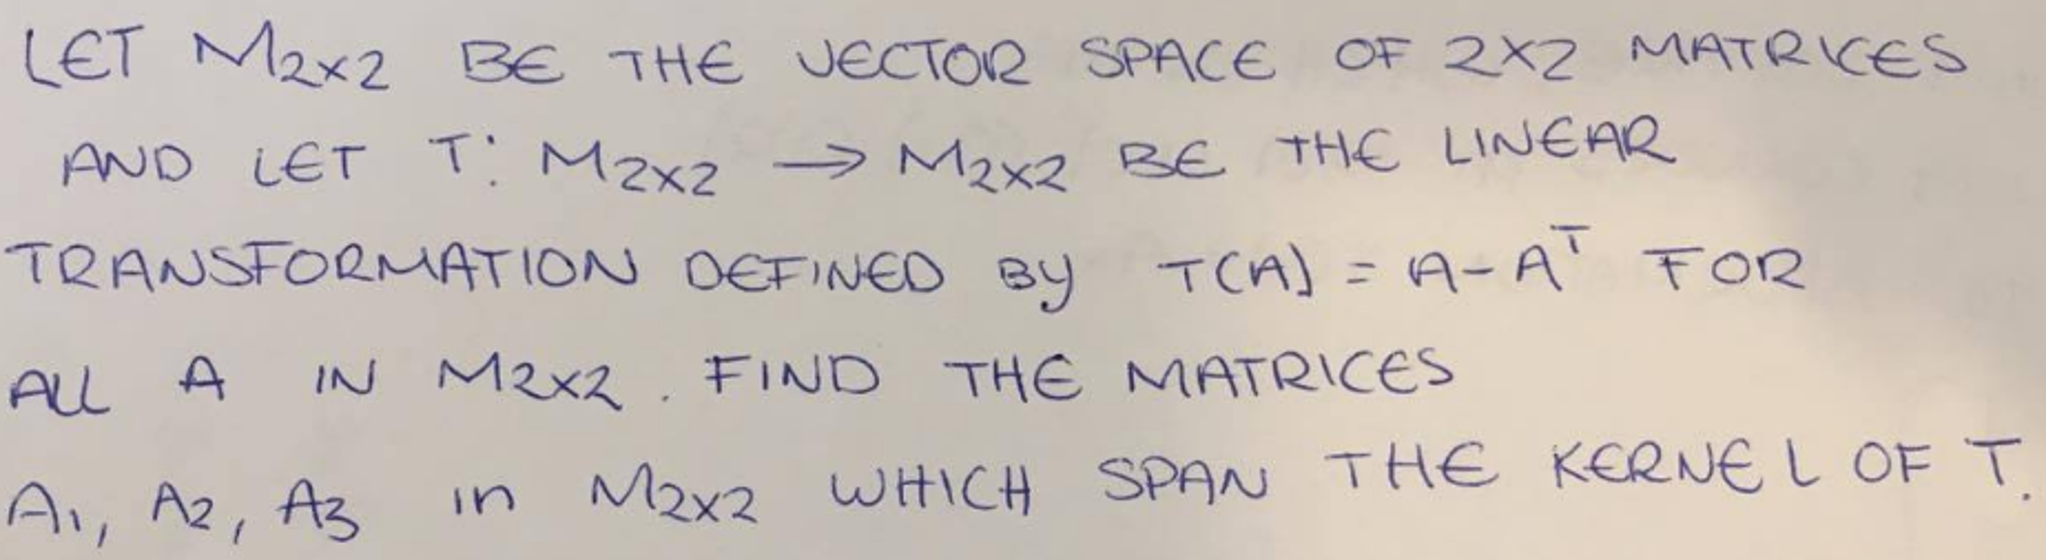 LET M2x2 BE THE VECTOR SPACE OF 2x2 MATRICES
AND LET T: M2x2 → M2x2 BE THE LINEAR
TRANSFORMATION DEFINED BY T(A) = A-Aᵀ FOR
ALL A IN M2x2. FIND THE MATRICES
A1, A2, A3 in M2x2 WHICH SPAN THE KERNEL OF T.